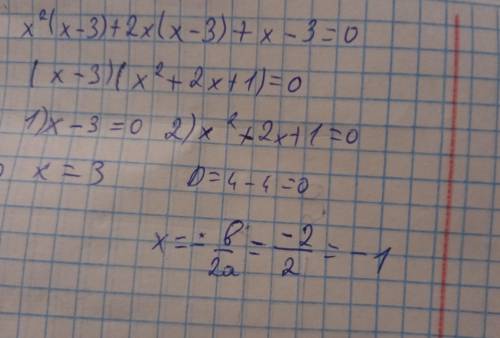 x²(x-3)+2x(x-3)+x-3=0
(x-3)(x²+2x+1)=0
1)x-3=0 2)x²+2x+1=0
x=3 D=4-4=0
x=-b/2a=-2/2=-1